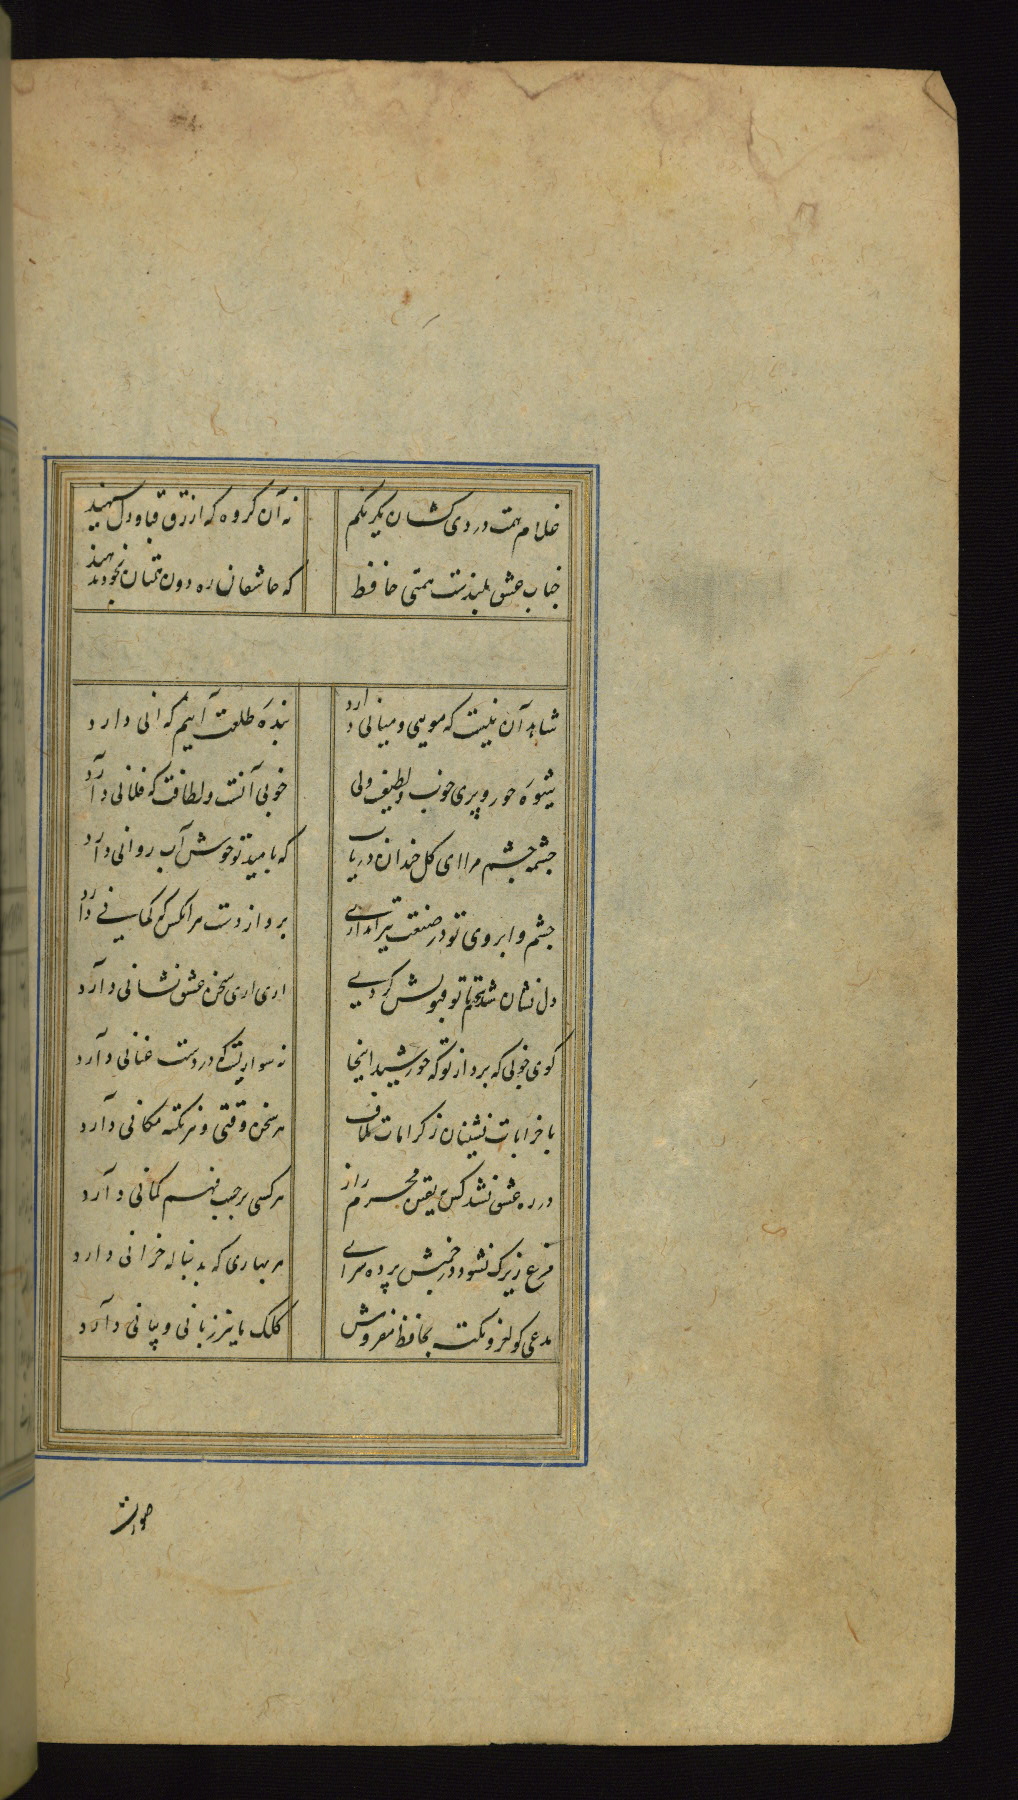 غلام همت دردی کشان یکرنگم نه آن گروه که ازرق قبا و دل سیهند
جناب عشق بلندست همتی حافظ که عاشقان ره دون همتان بخود ندهند
شاهد آن نیست که مویی و میانی دارد بنده طلعت آنیم که آنی دارد
شیوه حور و پری خوب و لطیف ولی خوبی آنست و لطافت که فلانی دارد
چشمه چشم مرا ای گل خندان دریاب که بامید تو خوش آب روانی دارد
چشم و ابروی تو در صنعت تیراندازی برد از دست هر آنکس که کمانی دارد
دل نشان شد سخنم تا تو قبولش کردی آری آری سخن عشق نشانی دارد
گوی خوبی که برد از تو که خورشید اینجا نه سواریست که در دست عنانی دارد
با خرابات نشینان ز کرامات ملاف هر سخن وقتی و هر نکته مکانی دارد
در ره عشق نشد کس بیقین محرم راز هر کسی بر حسب فهم گمانی دارد
مرغ زیرک نشود در چمنش پرده سرای هر بهاری که بدنباله خزانی دارد
مدعی گو لغز و نکته بحافظ مفروش کلک ما نیز زبانی و بیانی دارد